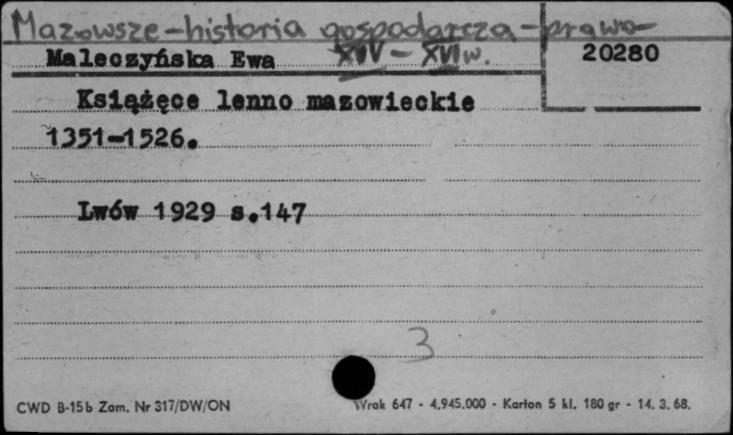 Mazowsze-historia gospodarcza-prawo-
XIV - XVI w.
Maleczyńska Ewa
20280
Książęce lenno mazowieckie
1351-1526.
Lwów 1929 s.147
3
CWD B-15b Zam. Nr 317/DW/ON
Wrak 647 - 4.945.000 - Karton 5 kl. 180 gr - 14. 3. 68.